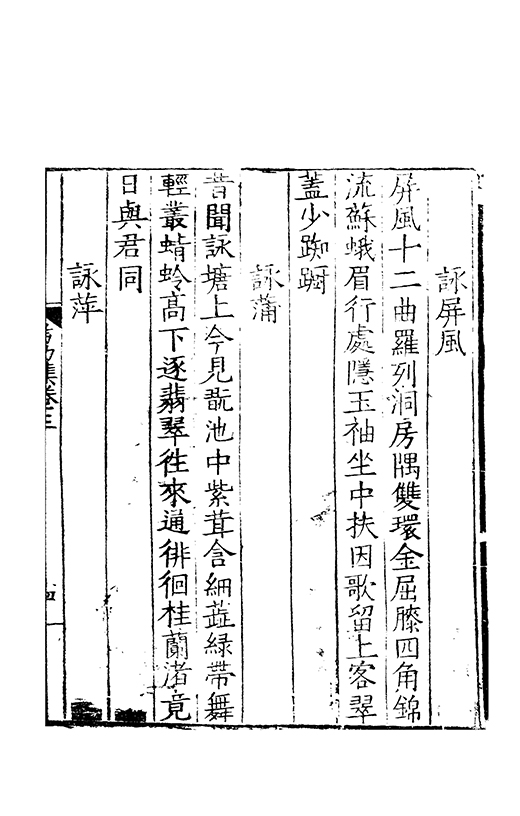 詠屏風
屏風十二曲羅列洞房隅雙環金屈膝四角錦
流蘇蛾眉行處隱玉袖坐中扶因歌留上客翠
蓋少踟躕
詠蒲
昔聞詠塘上今見翫池中紫茸含細蘂緑帶舞
輕叢蜻蛉高下逐翡翠徃來通徘徊桂蘭渚竟
日與君同
詠萍
集卷三
四